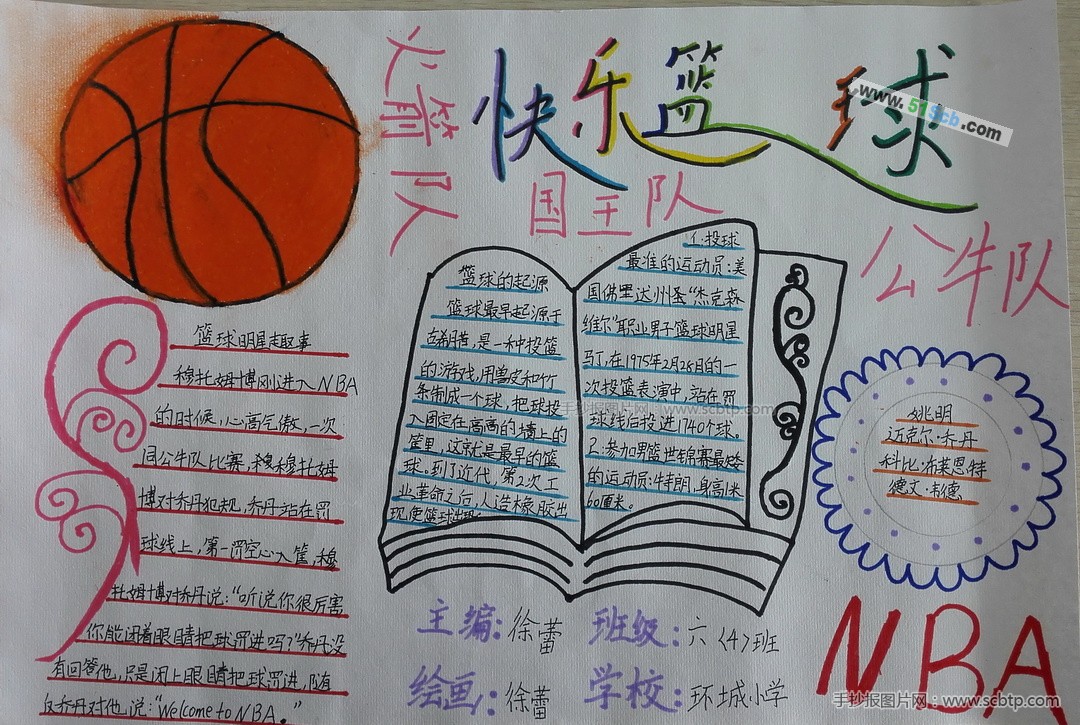 快乐篮球
www.51scb.com
火箭队
国王队
公牛队
篮球明星趣事
穆托姆博刚进入NBA
的时候，心高气傲，一次
同公牛队比赛，穆穆托姆
博对乔丹犯规，乔丹站在罚
球线上，第一罚空心入筐，穆
托姆博对乔丹说：“听说你很厉害
你能闭着眼睛把球罚进吗？”乔丹没
有回答他，只是闭上眼睛把球罚进，随
反乔丹对他说：“Welcome to NBA。”
篮球的起源
篮球最早起源于
古希腊，是一种投篮
的游戏，用兽皮和竹
条制成一个球，把球投
入固定在高高的墙上的
筐里，这就是最早的篮
球。到了近代，第2次工
业革命之后，人造橡胶出
现使篮球
1.投球
最准的运动员：美
国佛里达州圣“杰克森
维尔”职业男子篮球明星
马丁，在1975年2月26日的一
次投篮表演中，站在罚
球线后投进1740个球。
2.参加男篮世锦赛最矮
的运动员：特朗，身高1米
60厘米。
手抄报图片网：www.scbtp.com
姚明
迈克尔·乔丹
科比·布莱恩特
德文·韦德
主编：徐蕾 班级：六〈4〉班
绘画：徐蕾 学校：环城小学
NBA
手抄报图片网：www.scbtp.com